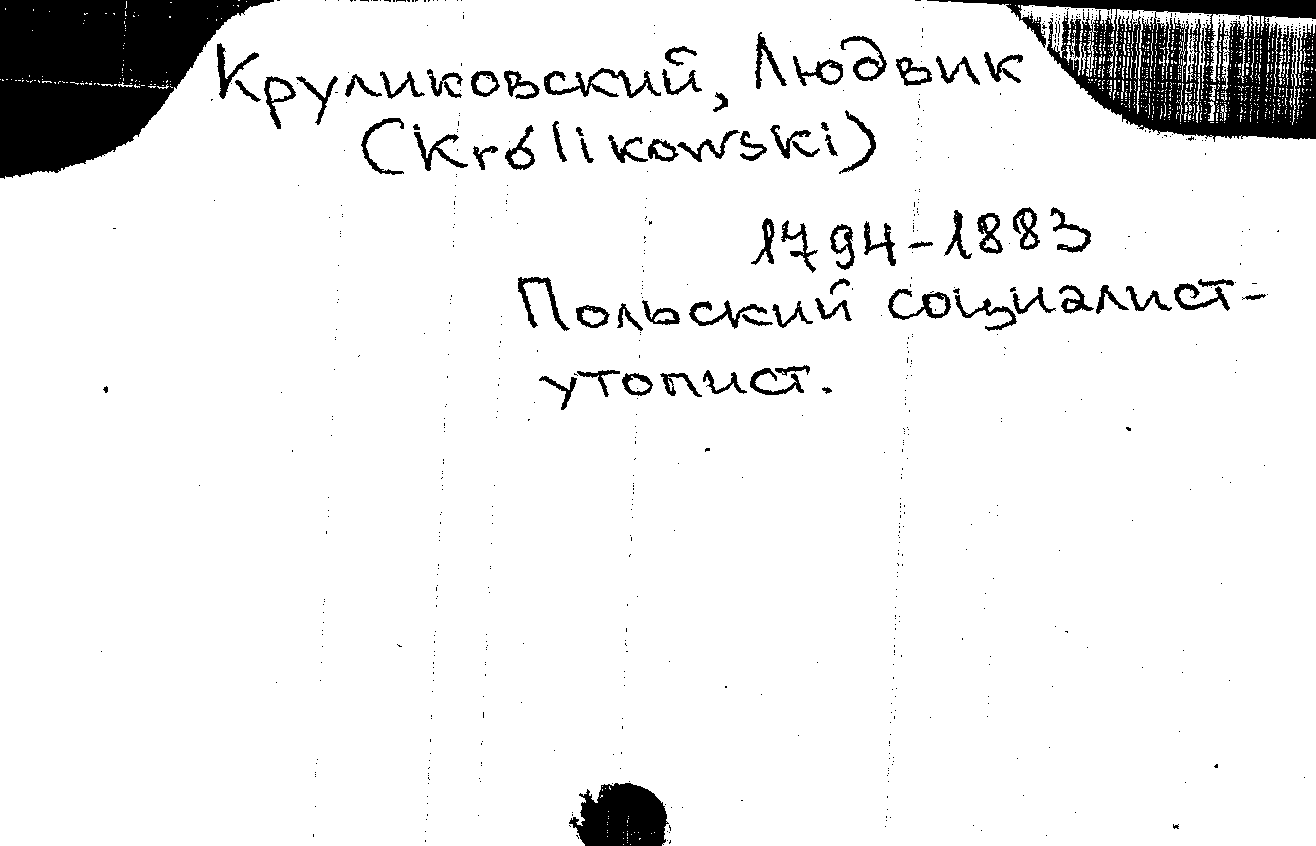 Круликовский, Людвик
(Królikowski)
1794-1883
Польский социалист-
утопист.